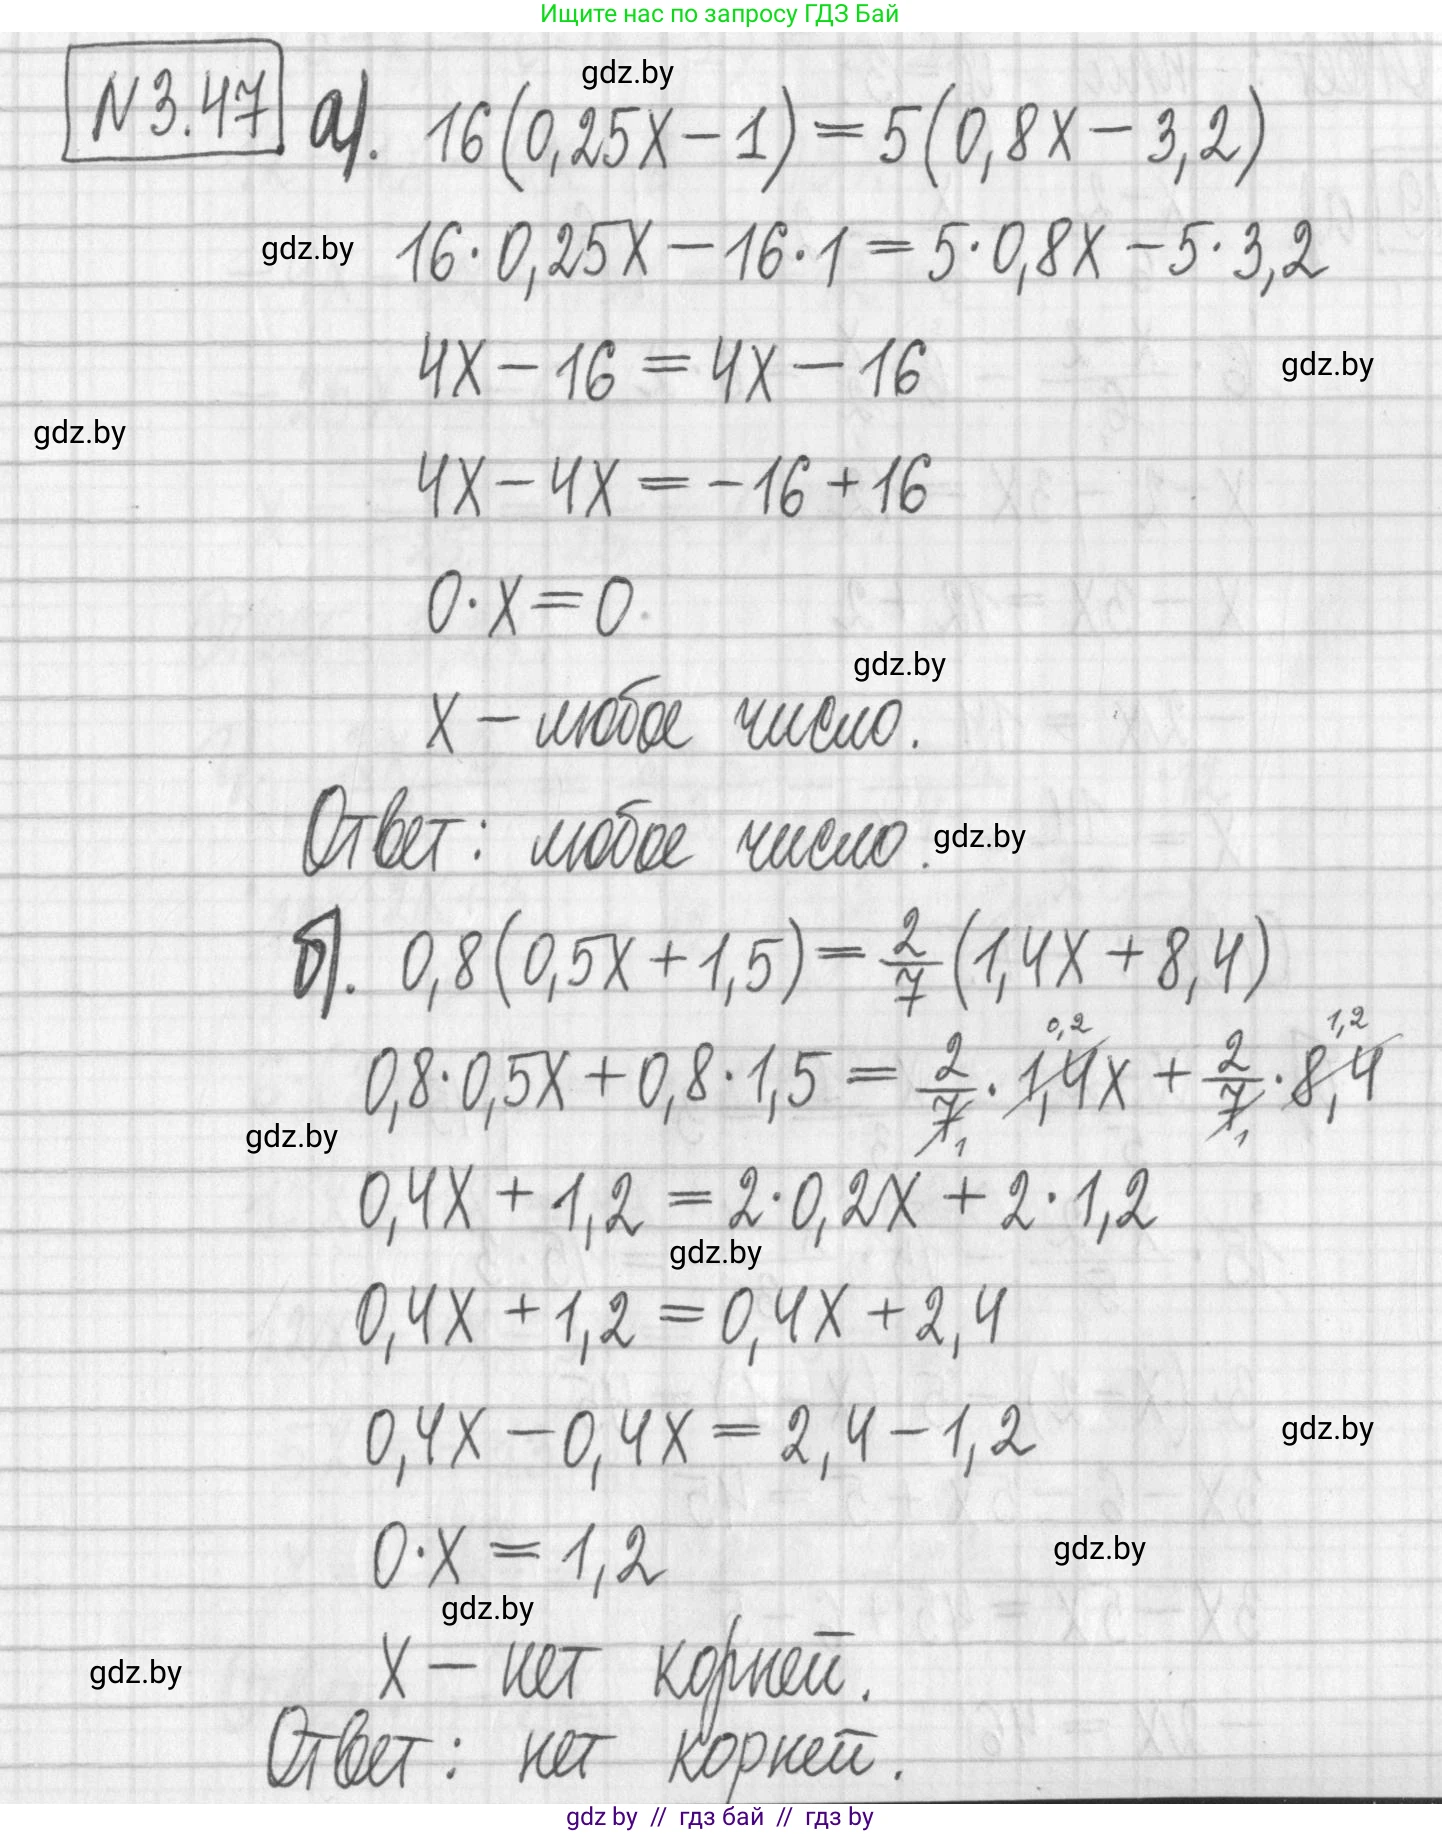 Ищите нас по запросу ГДЗ Бай
gdz.by
N3.47 а). 16(0,25x − 1) = 5(0,8x − 3,2)
gdz.by 16·0,25x − 16·1 = 5·0,8x − 5·3,2
4x − 16 = 4x − 16 gdz.by
gdz.by
4x − 4x = −16 + 16
0·x = 0
gdz.by
x − любое число.
Ответ: любое число. gdz.by
б). 0,8(0,5x + 1,5) = 2/7 (1,4x + 8,4)
0,2 1,2
0,8·0,5x + 0,8·1,5 = 2/7 · 1,4x + 2/7 · 8,4
gdz.by 1 1
0,4x + 1,2 = 2·0,2x + 2·1,2
gdz.by
0,4x + 1,2 = 0,4x + 2,4
0,4x − 0,4x = 2,4 − 1,2 gdz.by
0·x = 1,2 gdz.by
gdz.by
gdz.by x − нет корней.
Ответ: нет корней.
gdz by // гдз бай // гдз by